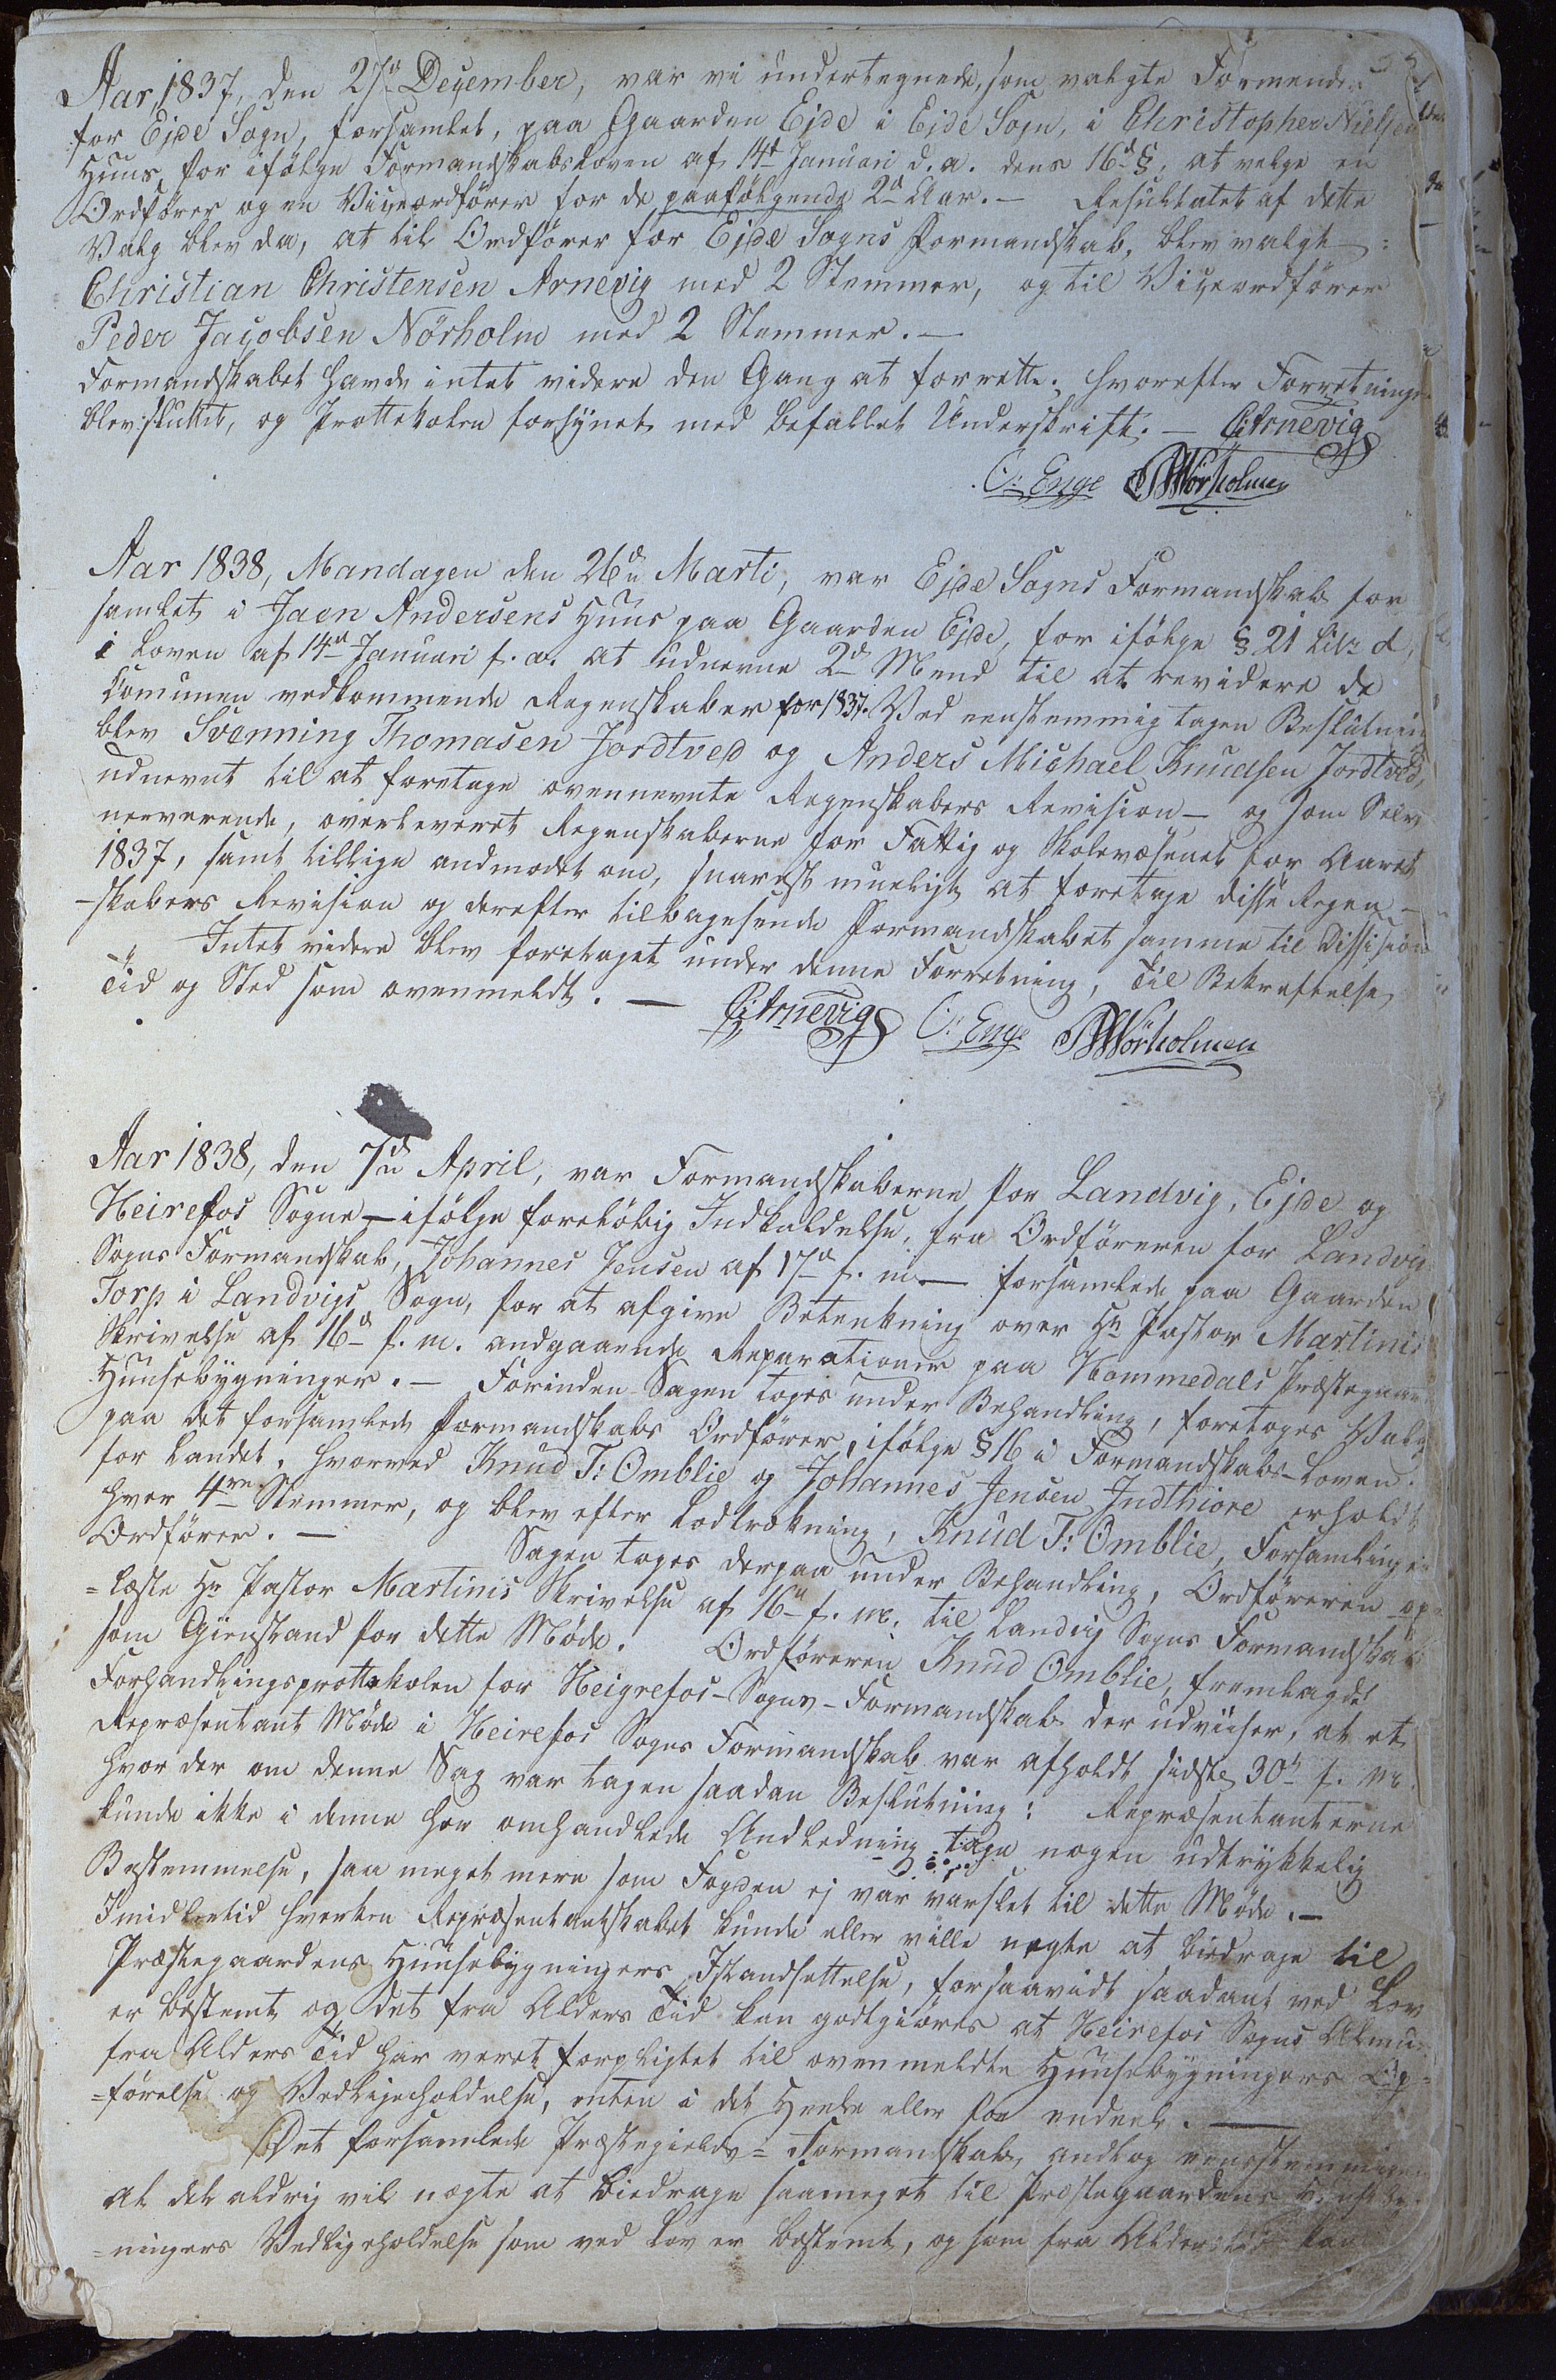 Aar 1837, den 27de Decemb̄er, var vi undertegnede, som valgte Formænd
for Ejde Sogn, forsamlet, paa Gaarden Ejde i Ejde Sogn, i Christopher Nielsen
Huus, for ifölge Formandskabsloven af 14de Januari d. a. dens 16de §, at velge en
Ordförer og en Viceordförer for de paafölgende 2de Aar. — Resultatet af dette
Valg blev da, at til Ordförer for Ejde Sogns Formandskab, blev valgt :
Christian Christensen Arnevig med 2 Stemmer, og til Viceordförer
Peder Jacobsen Nörholm med 2 Stemmer. —
Formandskabet havde intet videre den Gang at forrette; hvorefter Forretningen
blev sluttet, og Prottokolen forsynet med befallet Underskrift. — C: Arnevig
O: Enge PJNörholmen
Aar 1838, Mandagen den 26de Marti, var Ejde Sogns Formandskab for
samlet i Jaen Andersens Huus paa Gaarden Ejde, for ifölge § 21 Litr d,
i Loven af 14de Januari f. a. at udnevne 2de Mend til at revidere de
Comunen vedkommende Regenskaber for 1837. Ved eenstemmig tagen Beslutning
blev Svenning Thomasen Jordtved og Anders Michael Knudsen Jordtved,
udnevnt til at foretage ovennevnte Regenskabers Revision — og som Selv
nerverende, overleveret Regenskaberne for Fattig og Skolevæsenet for Aaret
1837, samt tillige andmodet om, snarest mueligt at foretage disse Regen-
-skabers Revision og derefter tilbagesende Formandskabet samme til Dissision
Intet videre blev foretaget under denne Forretning, Til Bekreftelse
Tid og Sted som ovenmeldt. — C: Arnevig O: Enge PJNörholmen
Aar 1838, den 7de April, var Formandskaberne for Landvig, Ejde og
Heirefos Sogne — ifölge forelöbig Indkaldelse, fra Ordföreren for Landvig
Sogns Formandskab, Johannes Jensen af 17de f. m. — forsamlede paa Gaarden
Torp i Landvigs Sogn, for at afgive Betenkning over Hr Pastor Martinis
Skrivelse af 16de f. m. andgaaende Reparationer paa Hommedals Præstegaards
Huusebygninger. — Forinden Sagen toges under Behandling, foretoges Valg
paa det forsamlede Formandskabs Ordförer, ifölge § 16 i Formandskabs-Loven
for Landet, hvorved Knud T: Omblie og Johannes Jensen Indthiore erholdt
hver 4re Stemmer, og blev efter Lodtrekning, Knud T: Omblie, Forsamlingens
Ordförer. — Sagen toges derpaa under Behandling, Ordföreren op-
=læste Hr Pastor Martinis Skrivelse af 16de f. m. til Landvig Sogns Formandskab
som Gienstand for dette Möde. Ordföreren Knud Omblie, fremlagde
Forhandlingsprottokolen for Heigrefos-Sogns-Formandskab der udviiser, at et
Repræsentant Möde i Heirefos Sogns Formandskab var afholdt sidste 30te f. m.
hvor der om denne Sag var tagen saadan Beslutning: Repræsentanterne
kunde ikke i denne her omhandlede Andledning tage nogen udtrykkelig
Bestemmelse, saa meget mere som Fogden ej var varslet til dette Möde. —
Imidlertid hverken Repræsentantskabet kunde eller ville negte at biedrage til
Præstegaardens Huusebygningers Istandsettelse, forsaavidt saadant ved Lov
er bestemt og det fra Alders Tid kan godtgiöres at Heirefos Sogns Almue
fra Alders Tid har veret forpligtet til ovenmeldte Huusebygningers Op-
=förelse og Vedligeholdelse, enten i det Heele eller for endeel. —
Det forsamlede Præstegields=Formandskab, andtog eensstemmigen
at det aldrig vil negte at biedrage saameget til Præstegaardens Huusebyg-
=ningers Vedligeholdelse som ved Lov er bestemt, og som fra Alders Tid kan